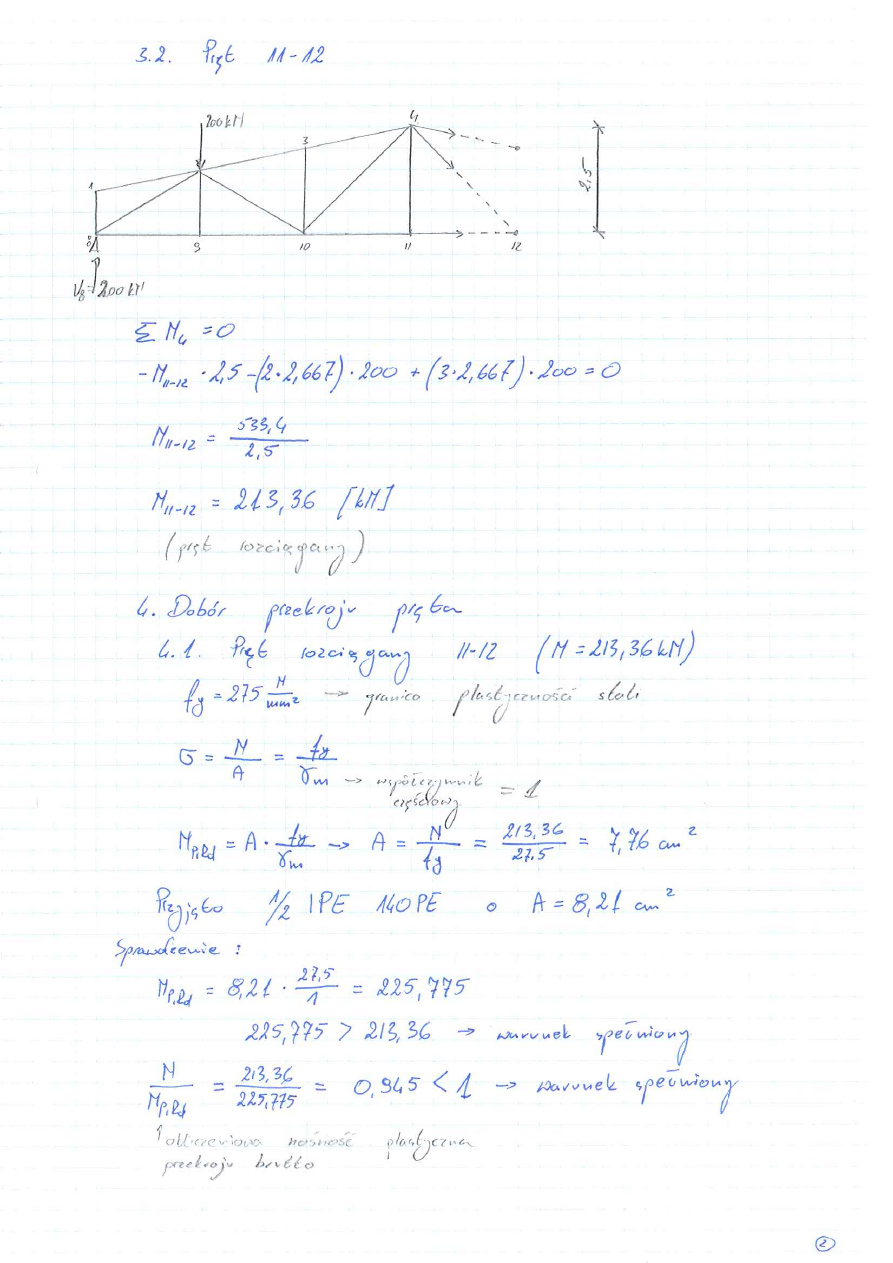 3.2. Pręt 11-12
200 kN
4
3
2
1
2,5
8
9
10
11
12
V₈=200 kN
Σ M₄ = 0
-N₁₁₋₁₂ · 2,5 - (2·2,667) · 200 + (3·2,667) · 200 = 0
N₁₁₋₁₂ = 533,4 / 2,5
N₁₁₋₁₂ = 213,36 [kN]
(pręt rozciągany)
4. Dobór przekroju pręta
4.1. Pręt rozciągany 11-12 (N = 213,36 kN)
fy = 275 N/mm² → granica plastyczności stali
σ = N/A = fy/γm → współczynnik częściowy = 1
Npl,Rd = A · fy/γm → A = N/fy = 213,36/27,5 = 7,76 cm²
Przyjęto 1/2 IPE 140PE o A = 8,21 cm²
Sprawdzenie :
Npl,Rd = 8,21 · 27,5/1 = 225,775
225,775 > 213,36 → warunek spełniony
N/Npl,Rd = 213,36/225,775 = 0,945 < 1 → warunek spełniony
↑ obliczeniowa nośność plastyczna
przekroju brutto
2